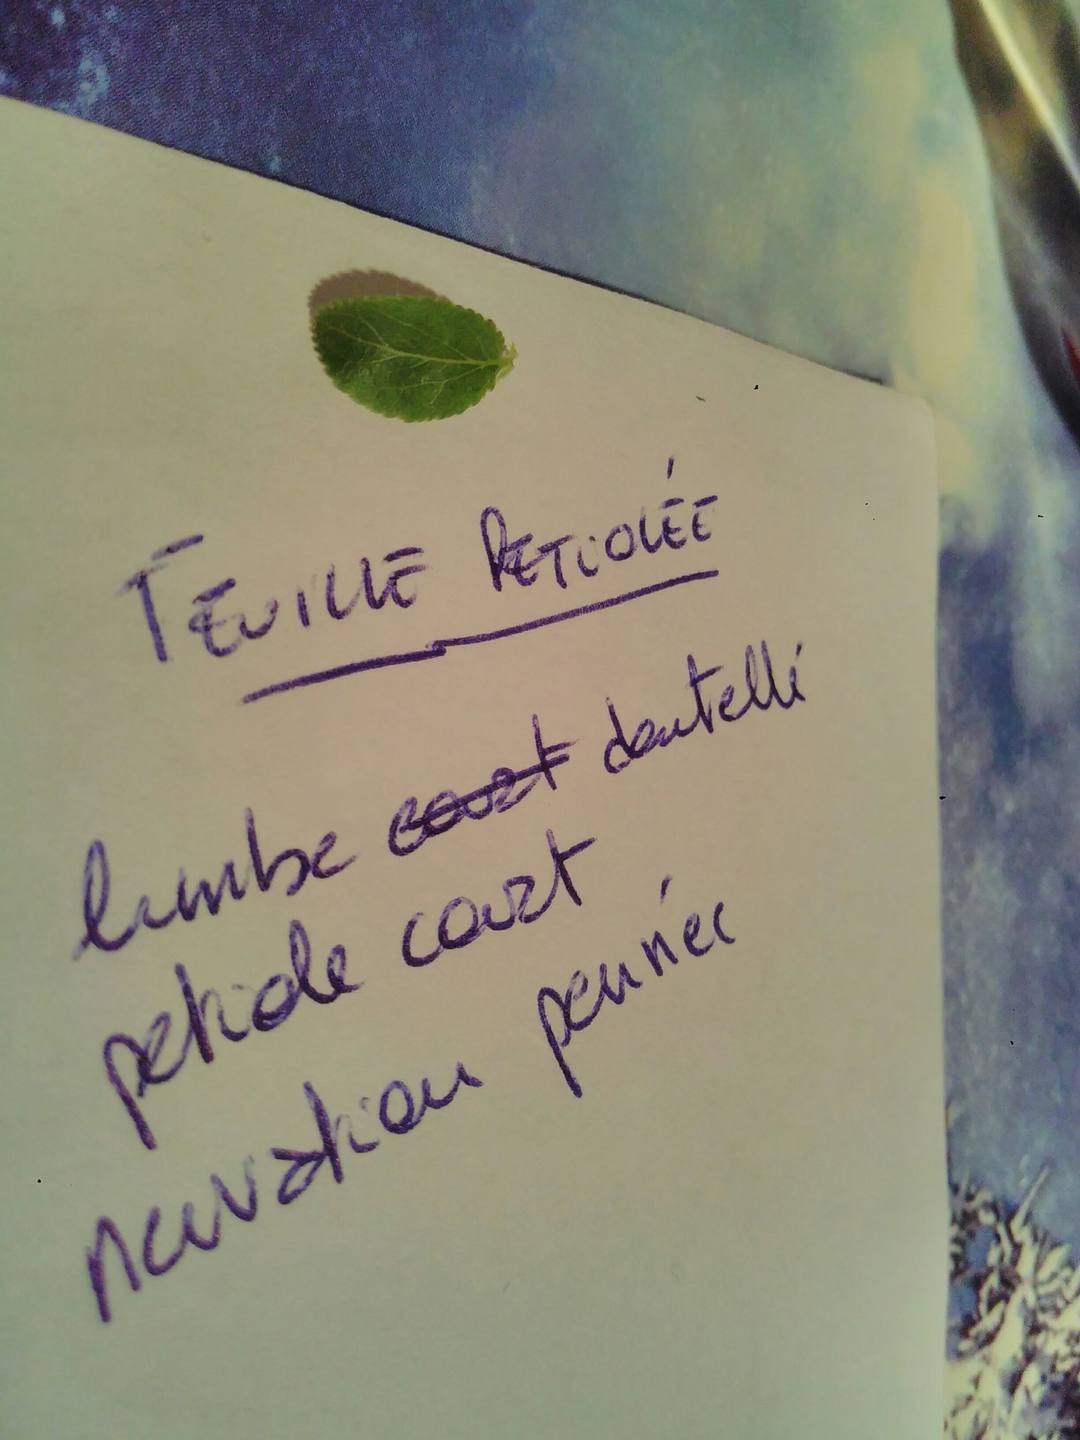 FEUILLE PETIOLÉE
limbe court dentelé
petiole court
nervation pennée